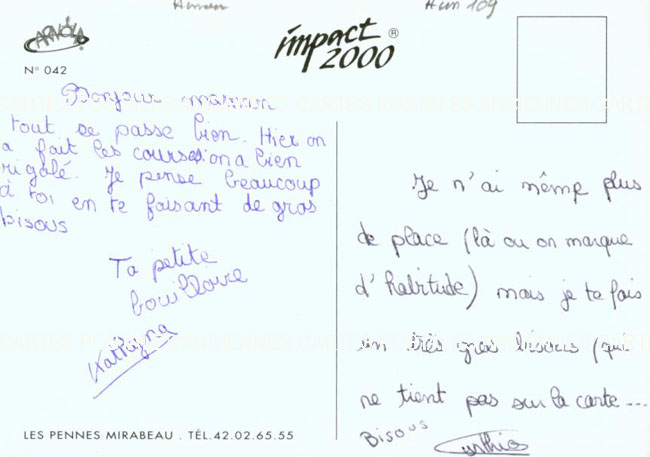 Human
Hum 109
ARNOLA
N° 042
impact ®
2000
Bonjour maman
tout se passe bien. Hier on
a fait les courses on a bien
rigolé. Je pense beaucoup
à toi en te faisant de gros
bisous
Ta petite
bouilloire
Je n'ai même plus
de place (là ou on marque
d'habitude) mais je te fais
un très gros bisous (qui
ne tient pas sur la carte...
Bisous
LES PENNES MIRABEAU . TÉL.42.02.65.55
CARTES POSTALES ANCIENNES